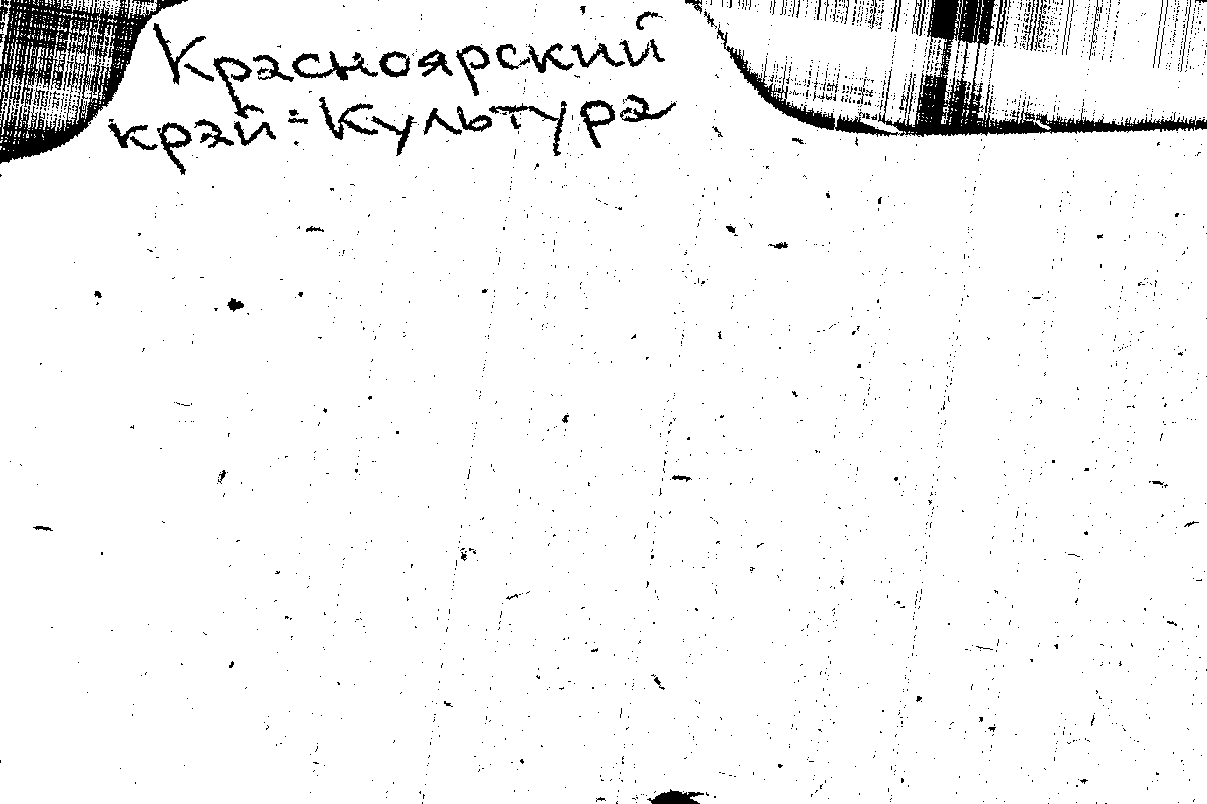 Красноярский
край = Культура